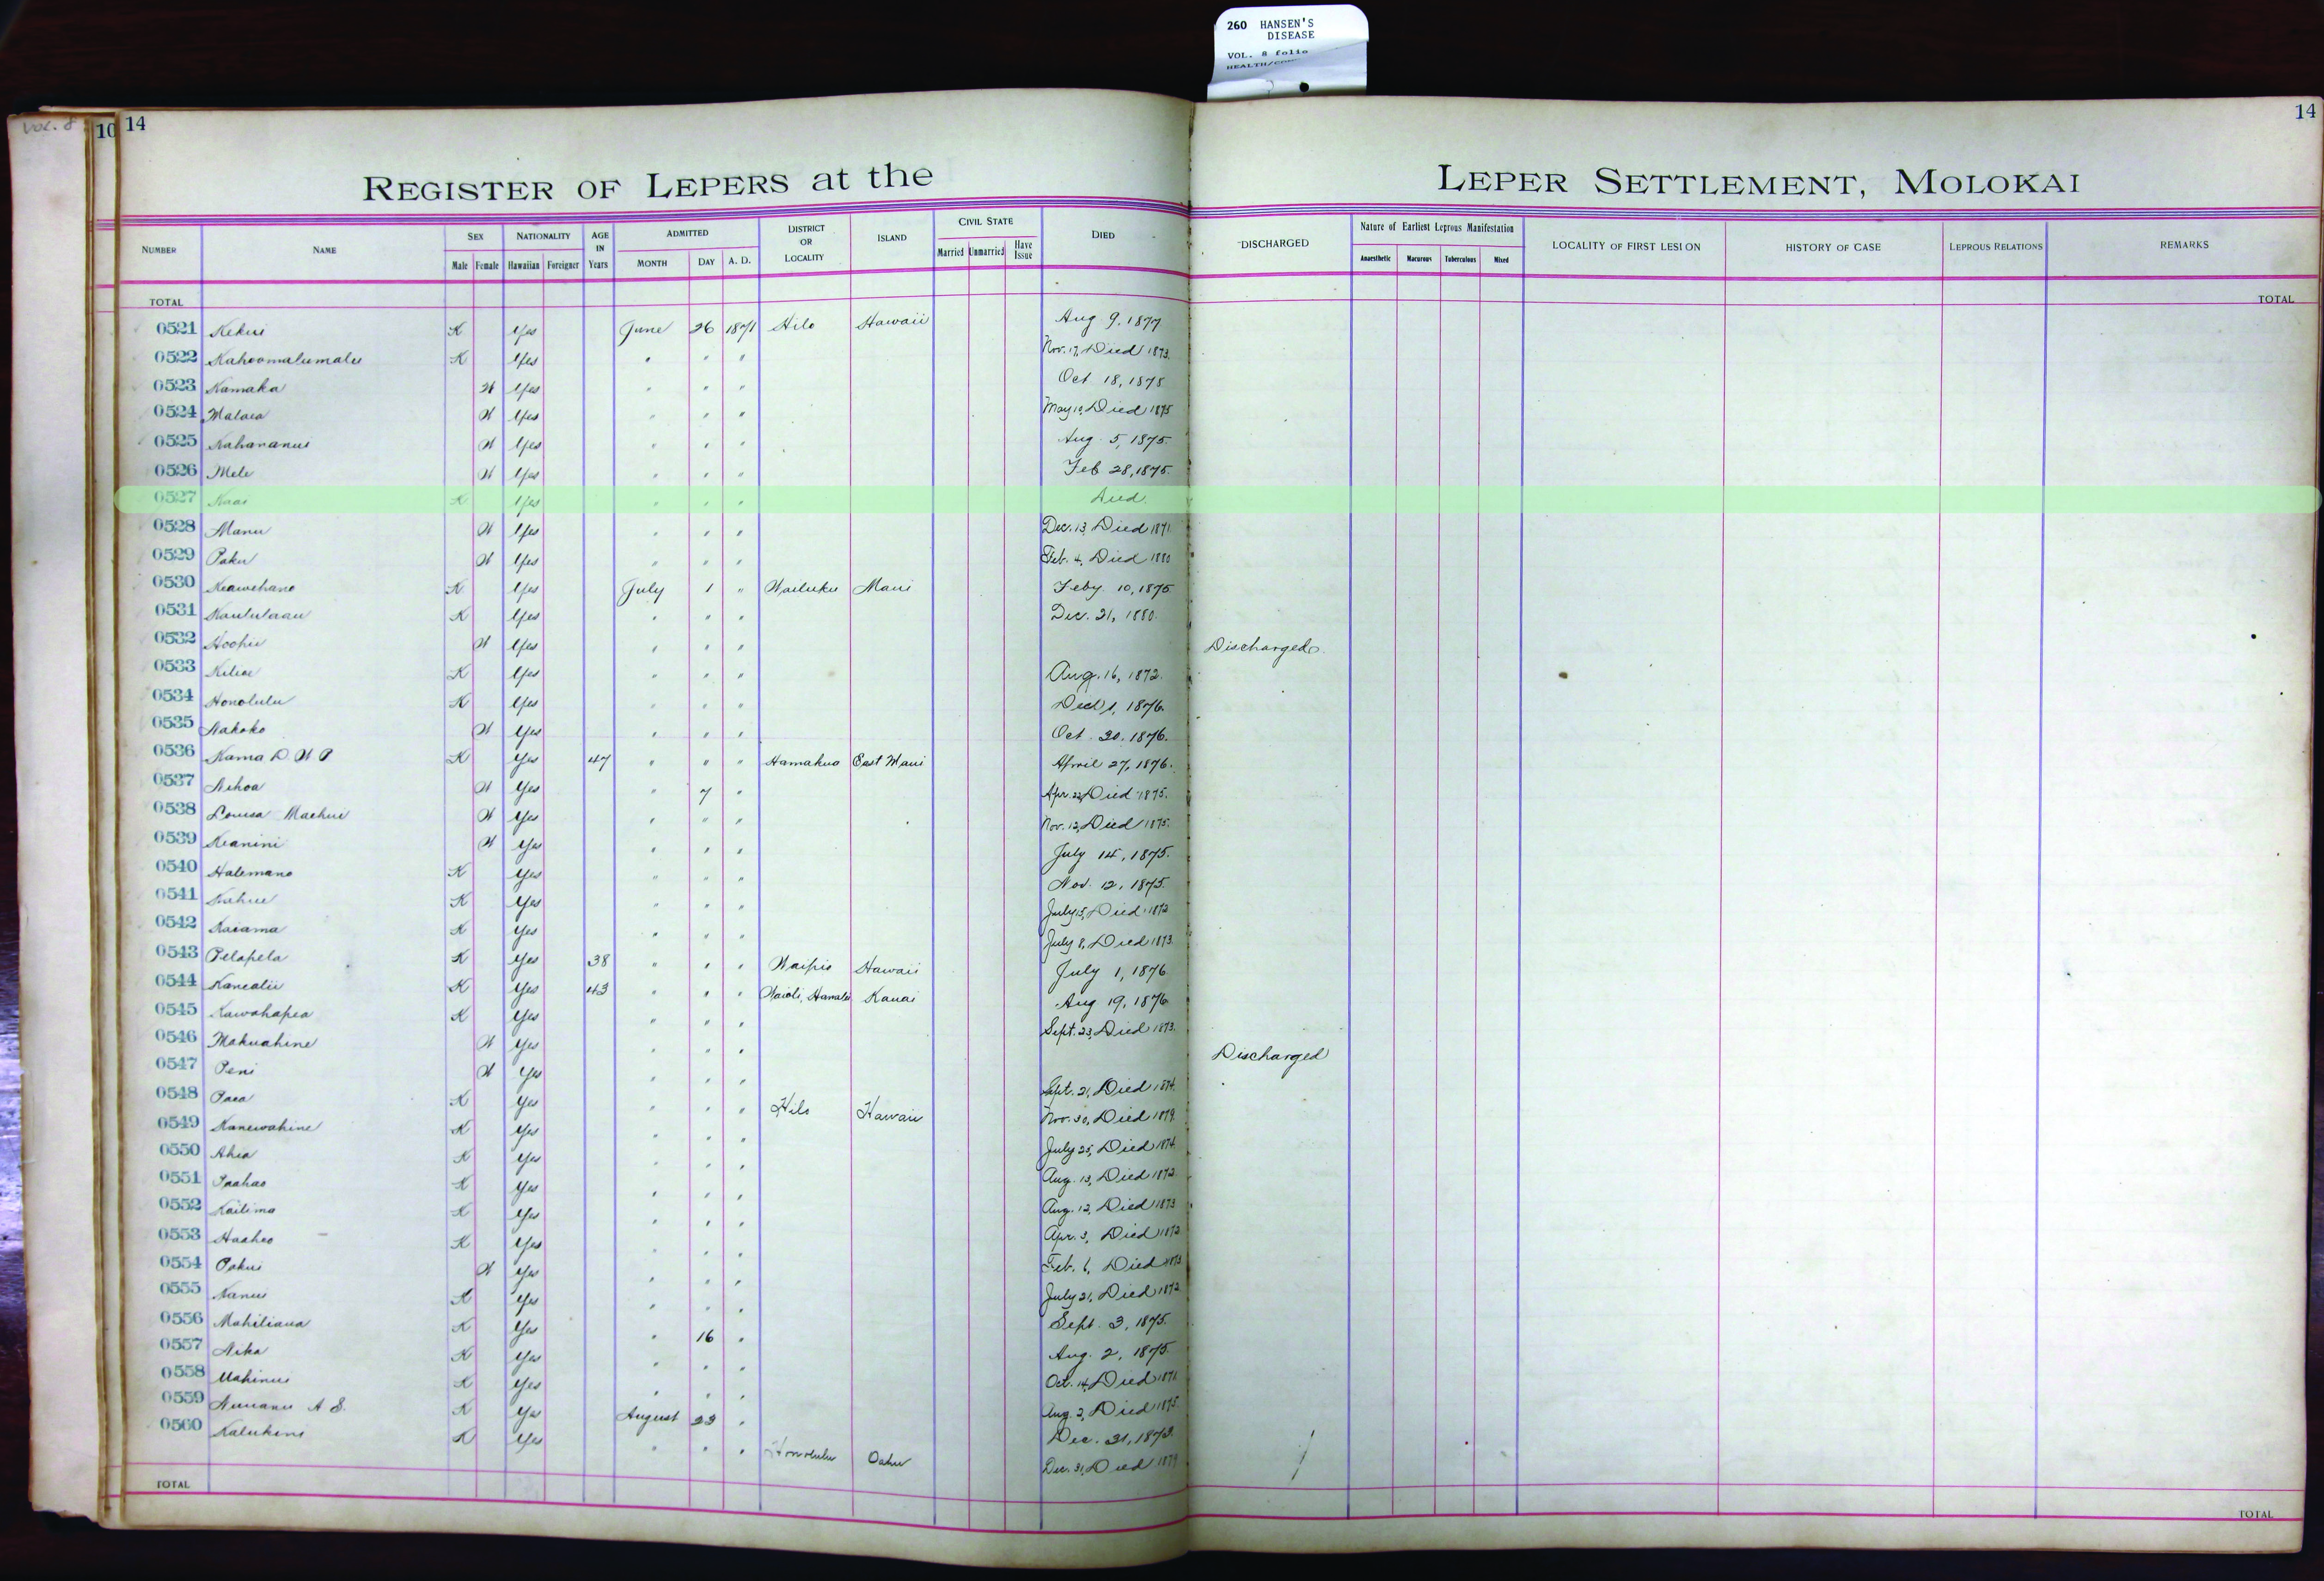 260 HANSEN'S
DISEASE
VOL. 8 folio
VOL. 8
10 14
14
REGISTER OF LEPERS at the LEPER SETTLEMENT, MOLOKAI
NUMBER NAME SEX NATIONALITY AGE IN Years ADMITTED DISTRICT OR LOCALITY ISLAND CIVIL STATE DIED DISCHARGED Nature of Earliest Leprous Manifestation LOCALITY OF FIRST LESION HISTORY OF CASE LEPROUS RELATIONS REMARKS
Male Female Hawaiian Foreigner MONTH DAY A. D. Married Unmarried Have Issue Anaesthetic Macurous Tuberculous Mixed
TOTAL TOTAL
0521 Kekui K Yes June 26 1871 Hilo Hawaii Aug 9, 1877
0522 Kahoomalumalu K Yes " " " Nov. 17, Died 1873.
0523 Kamaka W Yes " " " Oct 18, 1875
0524 Malaea W Yes " " " May 10, Died 1875
0525 Kahananui W Yes " " " Aug. 5, 1875.
0526 Mele W Yes " " " Feb 28, 1875.
0527 Kuai K Yes " " " Died
0528 Manu W Yes " " " Dec. 13, Died 1871
0529 Paku W Yes " " " Feb. 4, Died 1880
0530 Keawehano K Yes July 1 " Wailuku Maui Feby 10, 1875
0531 Kaululaau K Yes " " " Dec. 21, 1880.
0532 Hoohii W Yes " " " Discharged.
0533 Kiliae K Yes " " " Aug. 16, 1872.
0534 Honolulu K Yes " " " 1, 1876.
0535 Nakoko W Yes " " " Oct. 20, 1876.
0536 Kama D. W P K Yes 47 " " " Hamakua East Maui April 27, 1876.
0537 Nihoa W Yes " 7 " Apr. 22, Died 1875.
0538 Louisa Maehui W Yes " " " Nov. 12, Died 1875.
0539 Keanini W Yes " " " July 14, 1875.
0540 Halemano K Yes " " " Nov. 12, 1875.
0541 Kahue K Yes " " " July 15, Died 1872
0542 Kaiama K Yes " " " July 8, Died 1873.
0543 Pelapela K Yes 38 " " " Waipio Hawaii July 1, 1876
0544 Kanealii K Yes 43 " " " Waioli, Hanalei Kauai Aug 19, 1876
0545 Kawahapea K Yes " " " Sept. 23, Died 1873.
0546 Makuahine W Yes " " " Discharged
0547 Peni W Yes " " " Sept. 21, Died 1874.
0548 Paea K Yes " " " Hilo Hawaii Nov. 30, Died 1879.
0549 Kanewahine K Yes " " " July 25, Died 1874.
0550 Ahia K Yes " " " Aug. 13, Died 1872.
0551 Paahao K Yes " " " Aug. 12, Died 1873
0552 Kailima K Yes " " " Apr. 3, Died 1872
0553 Haaheo K Yes " " " Feb. 6, Died 1873
0554 Pakui W Yes " " " July 21, Died 1872
0555 Nanui K Yes " " " Sept. 3, 1875.
0556 Mahiliana K Yes " 16 " Aug. 2, 1875.
0557 Nika K Yes " " " Oct. 14, Died 1871
0558 Mahinui K Yes " " " Aug. 2, Died 1875.
0559 Nuuanu A S. K Yes August 23 " Dec. 31, 1873
0560 Kalukini K Yes " " " Honolulu Oahu Dec. 31, Died 1879
TOTAL TOTAL